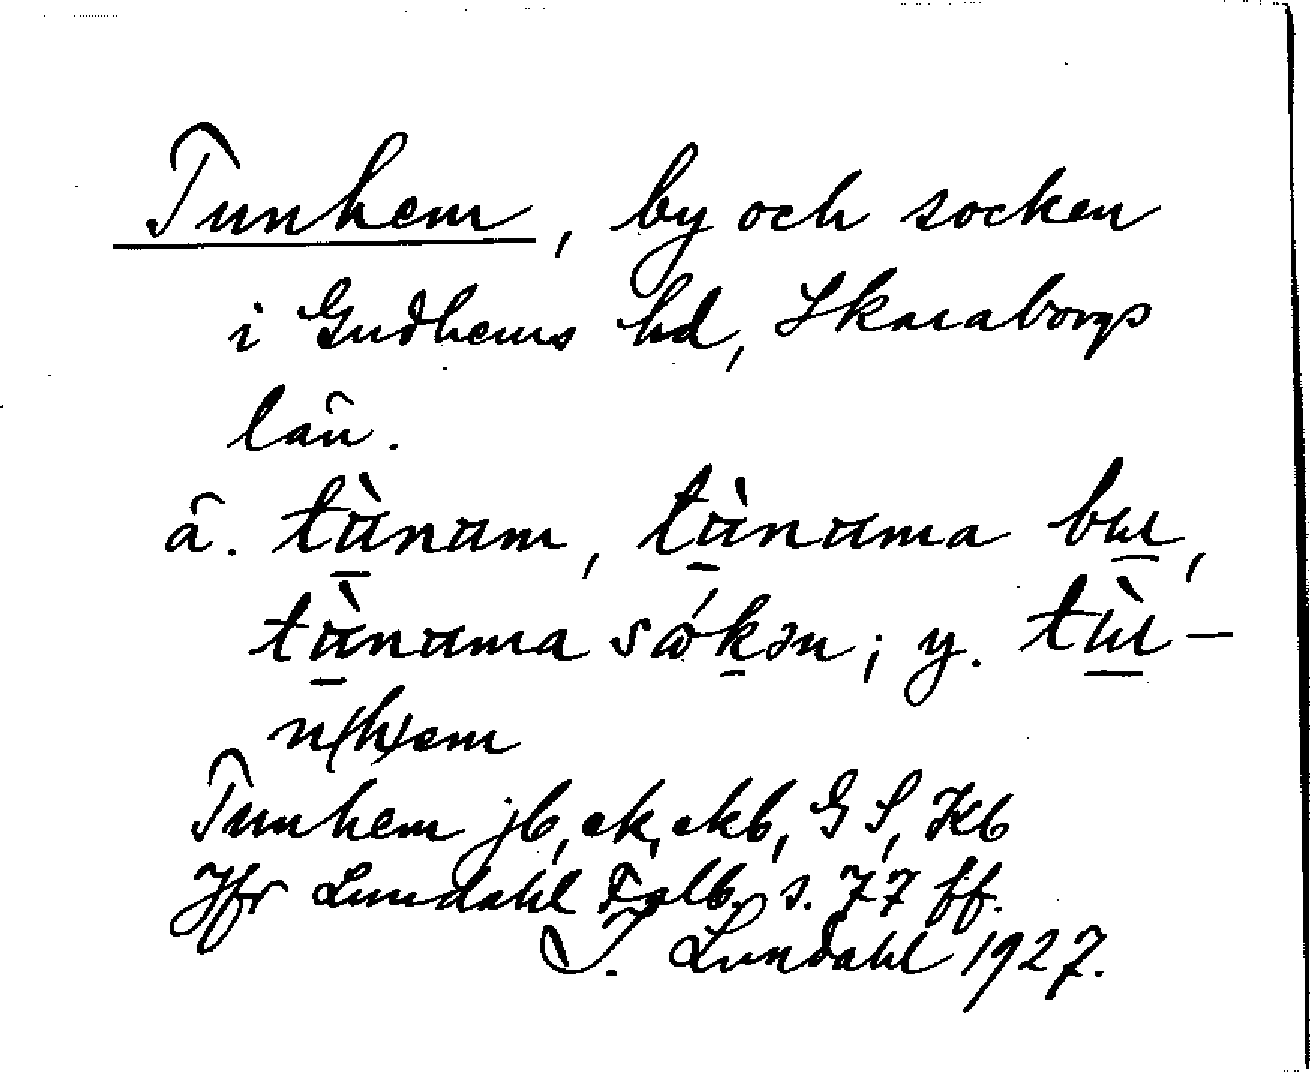 Tunhem, by och socken
i Gudhems hd, Skaraborgs
län.
ä. tὰ̠nαm, tὰ̠nαma bɯ̠,
tὰ̠nαma sǿk̠ən; y. tɯ̠̀-
n(h)em
Tunhem jb, ek, ekb, GS, Kb
Jfr Lundahl Falb. s. 77 ff.
I. Lundahl 1927.